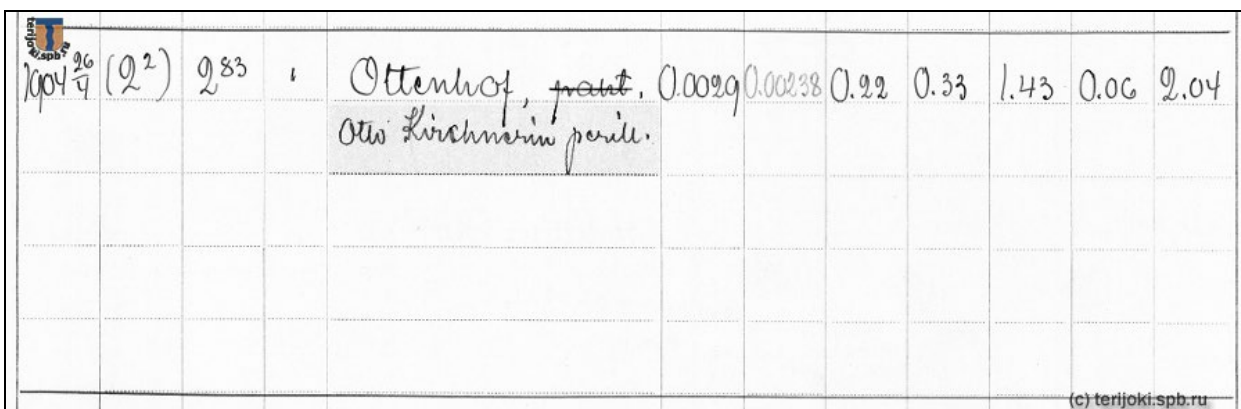 terijoki.spb.ru
1904 26/4 (2²) 2⁸³ Ottenhof, 0.0029 0.00238 0.22 0.33 1.43 0.06 2.04
Otto Kirchnerin perill.
(c) terijoki.spb.ru